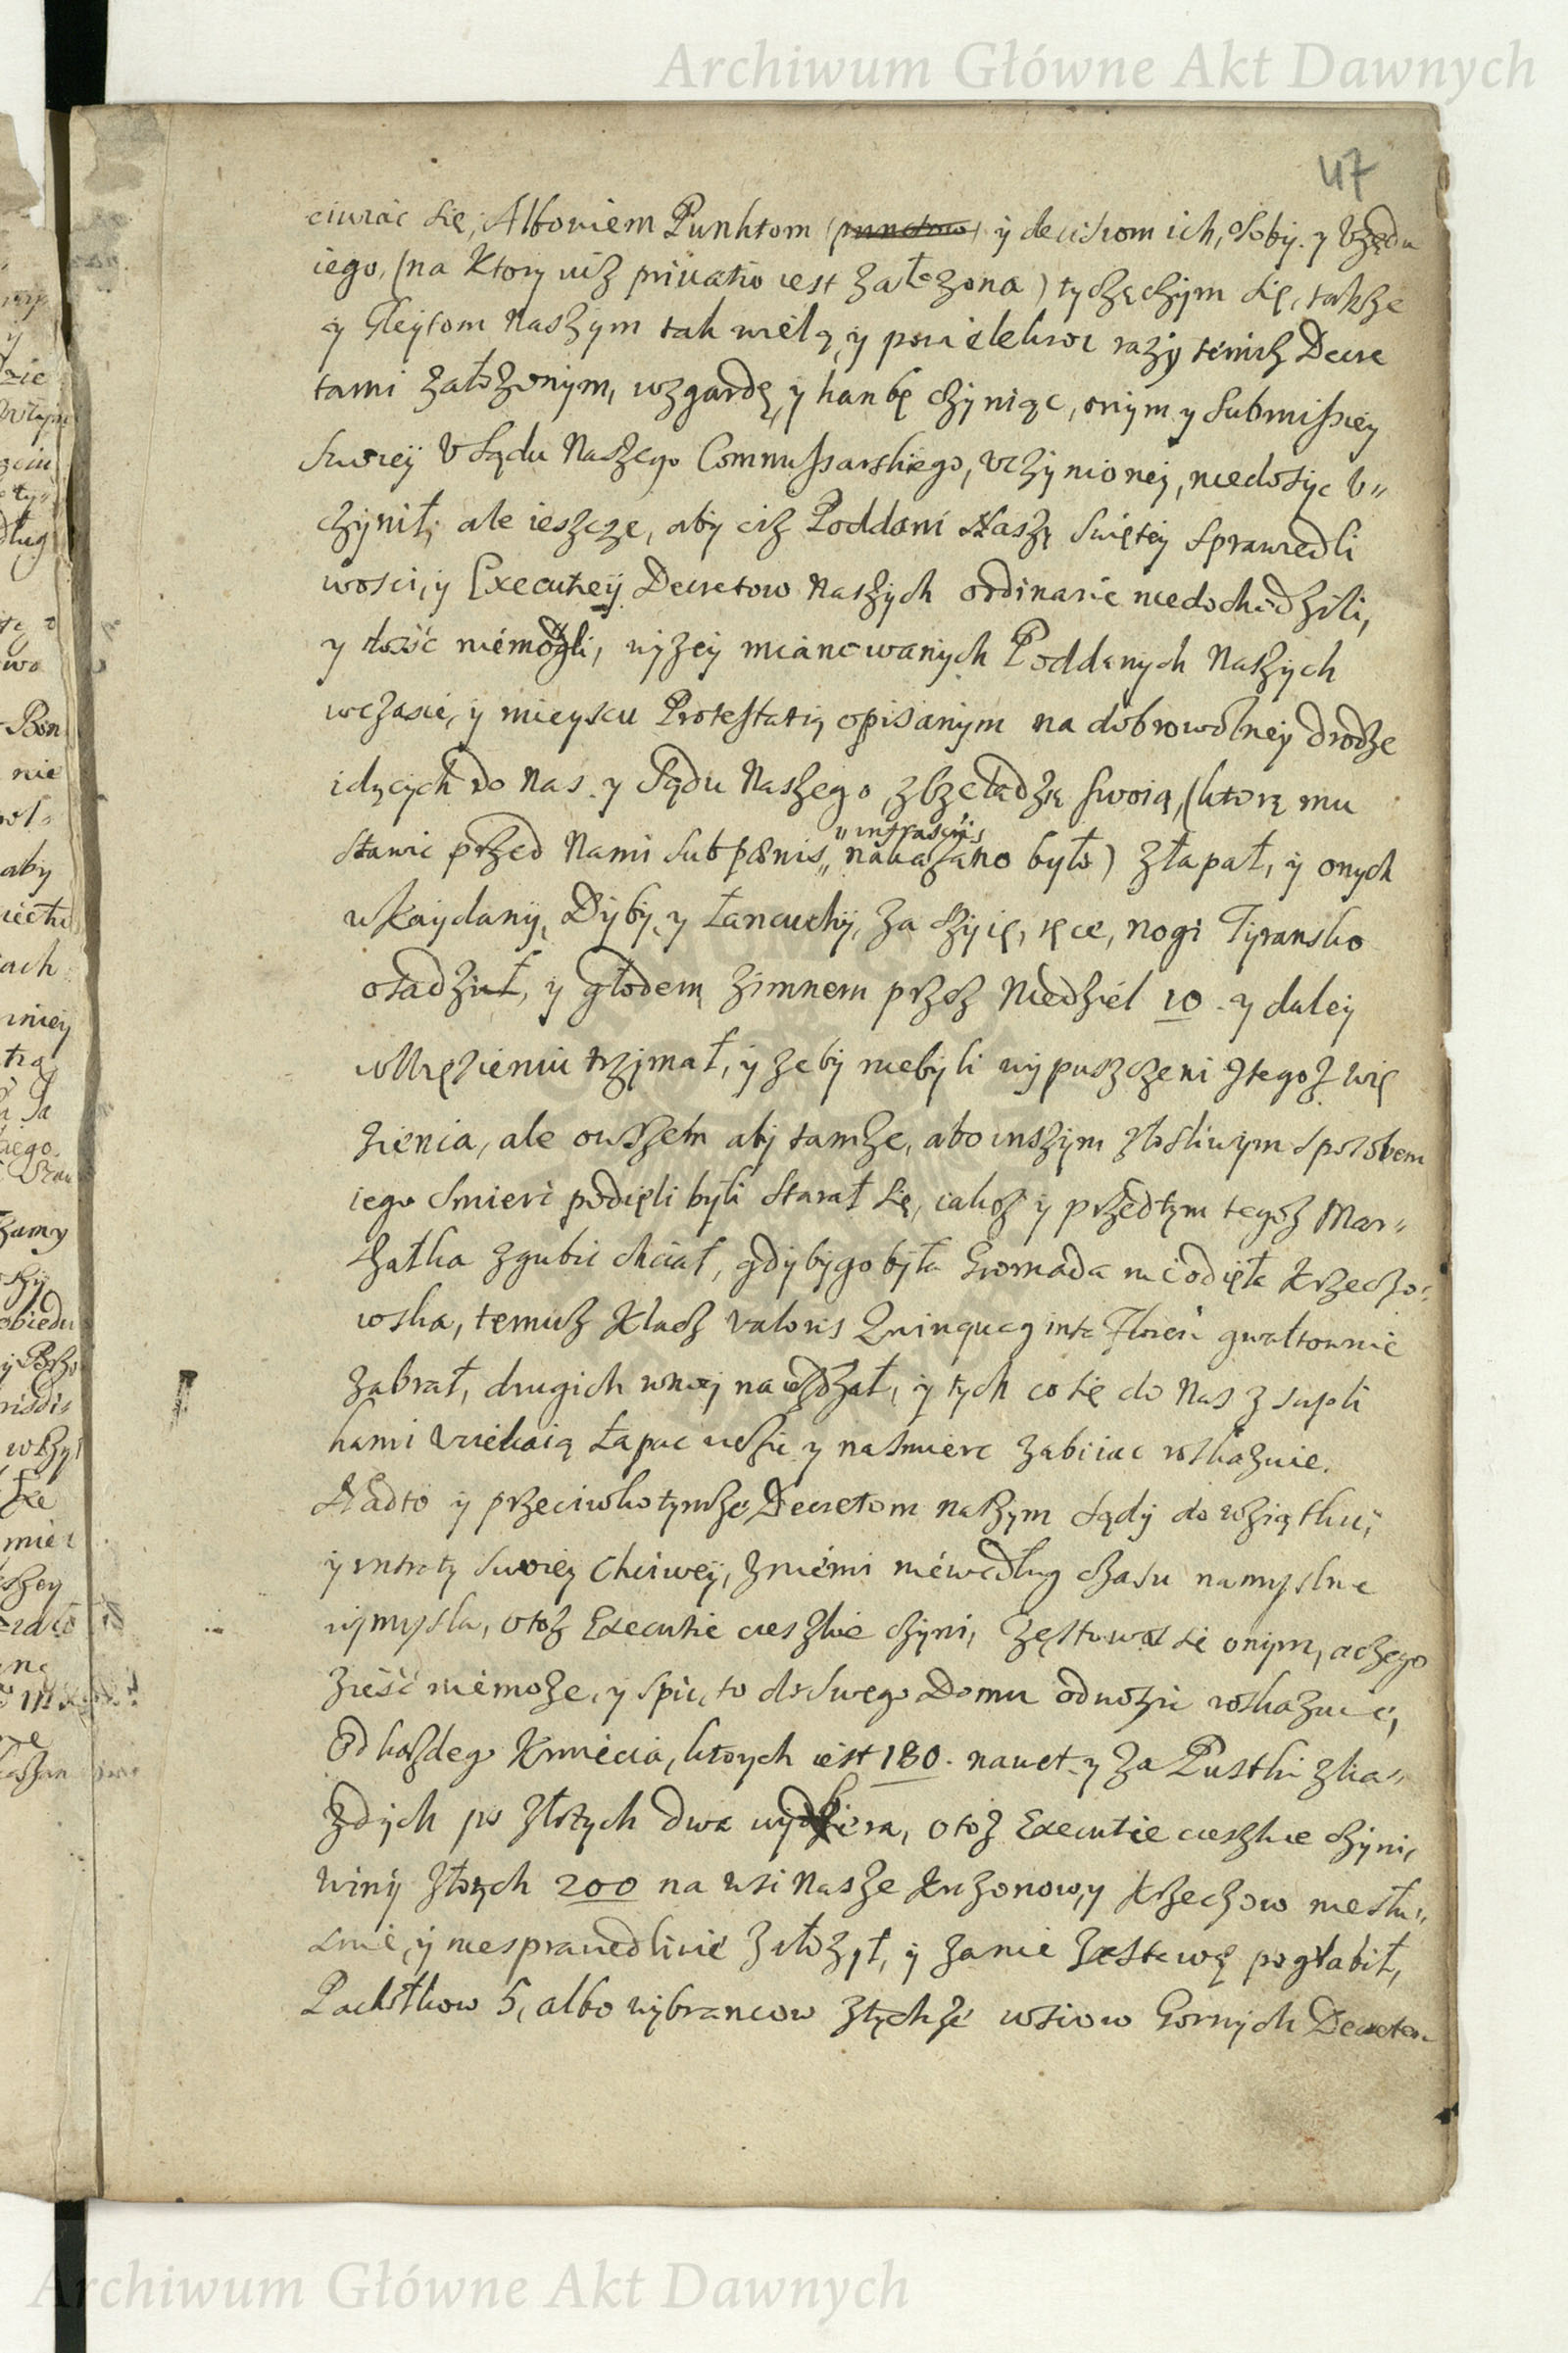 Archiwum Główne Akt Dawnych
47
ciwiać się, Albowiem Punktom (punctow) y decisiom ich, Soby. y Vrzędu
iego, (na ktory iuz priuatio iest załozona) tyczączym się, takze
y Gleytom Naszym tak wielą, y powielekroc razy temisz Decre
tami załozonym, wzgardę, y hanbę czyniąc, onym y Submissiey
Swoiey V Sądu Naszego Commissarskiego, vczynioney, niedosyc v„
czynił, ale ieszcze, aby cisz Poddani Naszy Swiętey Sprawiedli
wosci, y Executiey Decretow Naszych ordinarie niedochodzili,
y niemogli, wyzey mianowanych Poddanych Naszych
wczasie, y mieyscu Protestatią opisanym na dobrowolney drodze
idących do Nas y Sądu Naszego zczeladzią swoią, (ktorą mu
„infrascriptis
stawic przed Nami sub pœnis„ nakazano było) złapał, y onych
w Kaydany, Dyby, y Łancuchy, za szyię, ręce, nogi Tyransko
osadził, y głodem zimnem przez Niedziel 10 y daley
wWięzieniu trzymał, y zeby niebyli wypuszczeni ztegosz wię
zienia, ale owszem aby tamze, abo inszym złosliwym sposobem
iego smierc podięli byli starał się, iakosz y przedtym tegosz Mar„
szałka zgubic chciał, gdyby go była Gromada nieodięła Krzeczo„
wska, temusz Klacz valoris Quinquaginta Floren gwałtownie
zabrał, drugich wniey nawdział, y tych co się do Nas z supli
kami vciekaią Łapac wszie y nasmierc zabiiac roskazuie.
Nadto y przeciwko tymze Decretom naszym sądy do wziątku,
y intraty swoiey chciwey, zniemi niewedług czasu namyslne
wymysla, otosz Executie cieszkie czyni, Częstowac się onym, a czego
zieść niemoze, y spic, to do swego Domu odnosic roskazuie,
Od kazdego Kmiecia, ktorych iest 180. nawet y za Pustki zka„
zdych po złotych dwa wybiera, o tosz Executie cieszkie czyni,
winy złotych 200 na wsi Nasze Kuzonow, y Krzeczow niesłu„
sznie, y niesprawiedliwie załozył, y zanie zastawę pograbił,
Pachołkow 5, albo wybrancow ztychze wsiow Gornych Decretem
Archiwum Główne Akt Dawnych